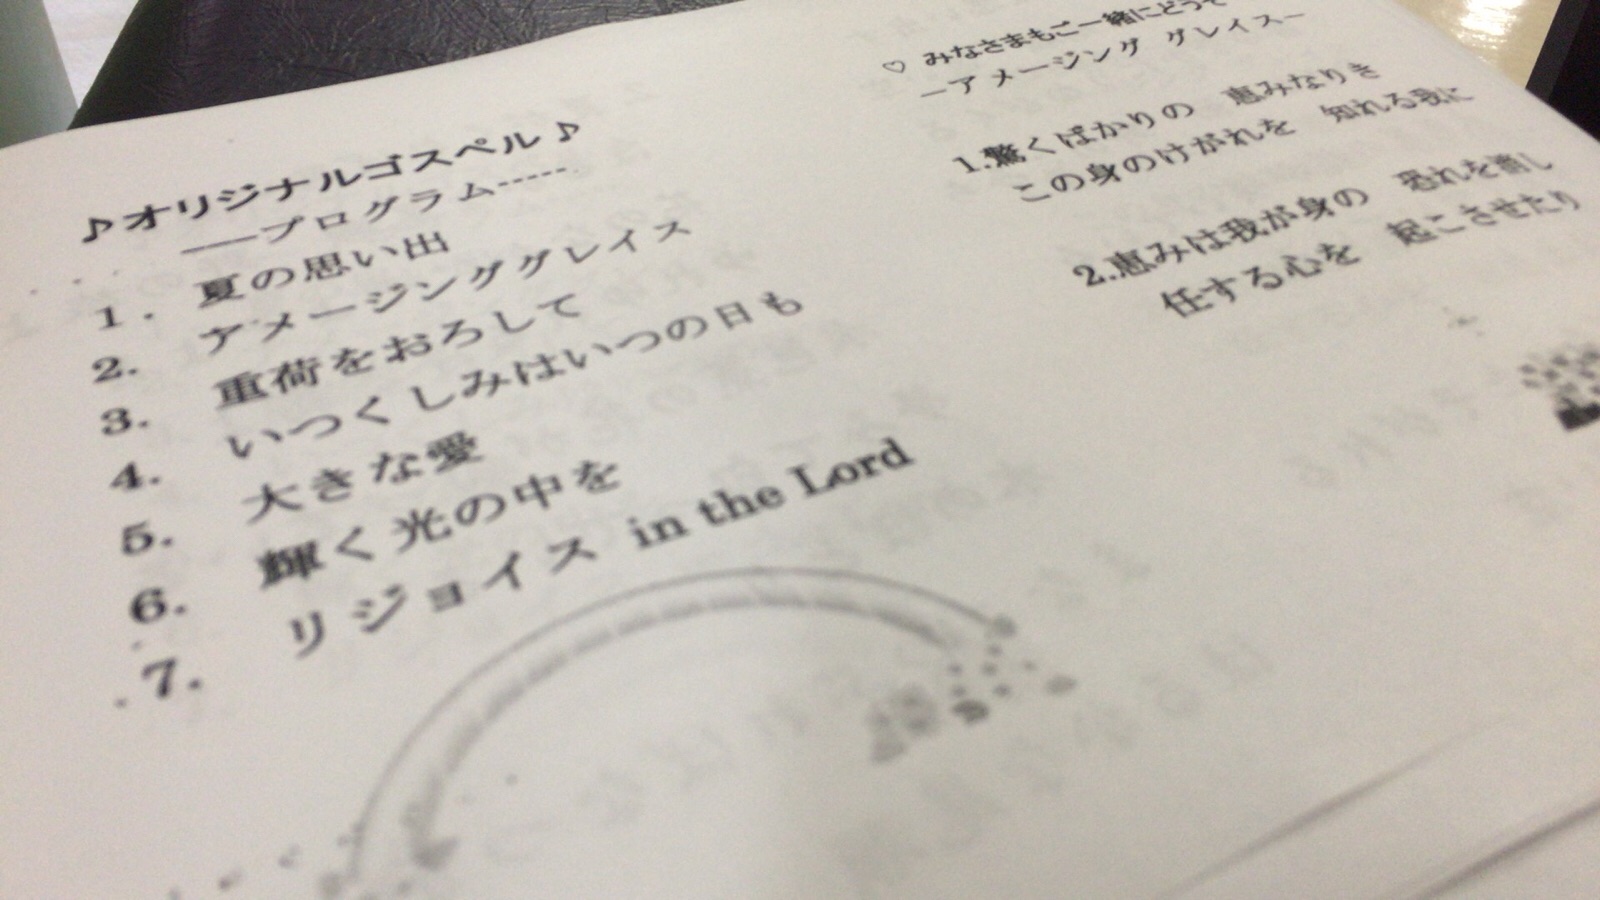 ♪オリジナルゴスペル♪
――プログラム-----
1. 夏の思い出
2. アメージンググレイス
3. 重荷をおろして
4. いつくしみはいつの日も
5. 大きな愛
6. 輝く光の中を
7. リジョイス in the Lord
♡ みなさまもご一緒にどうぞ
－アメージング グレイス－
1.驚くばかりの 恵みなりき
この身のけがれを 知れる我に
2.恵みは我が身の 恐れを消し
任する心を 起こさせたり